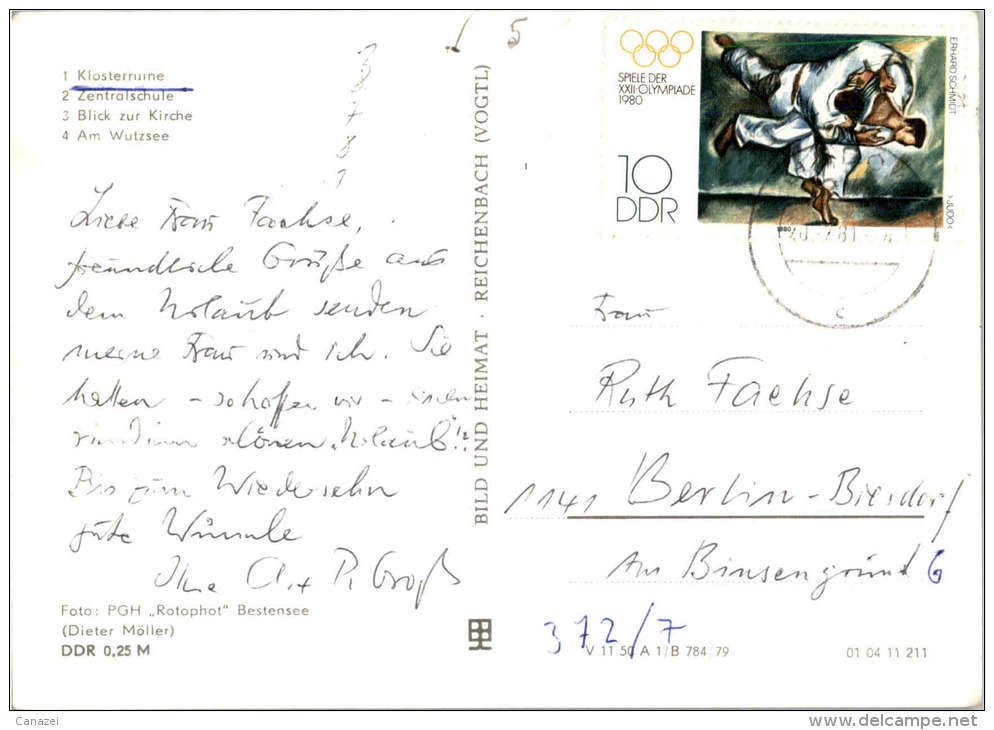 1 Klosterruine
2 Zentralschule
3 Blick zur Kirche
4 Am Wutzsee
3
7
8
1
5
SPIELE DER
XXII. OLYMPIADE
1980
10
DDR
ERHARD SCHMIDT
>JUDO<
1980
c
Liebe Frau Fachse,
freundliche Grüße aus
dem Urlaub senden
meine Frau und ich. Sie
hatten – so hoffen wir – einen
rundum schönen „Urlaub"!?
Bis zum Wiedersehn
gute Wünsche
Ihre A. + P. Groß
Foto: PGH „Rotophot" Bestensee
(Dieter Möller)
DDR 0,25 M
BILD UND HEIMAT · REICHENBACH (VOGTL)
Frau
Ruth Fachse
1141 Berlin-Biesdorf
Am Binsengrund 6
372/7
V 11 50 A 1/B 784/79
01 04 11 211
Canazei
www.delcampe.net